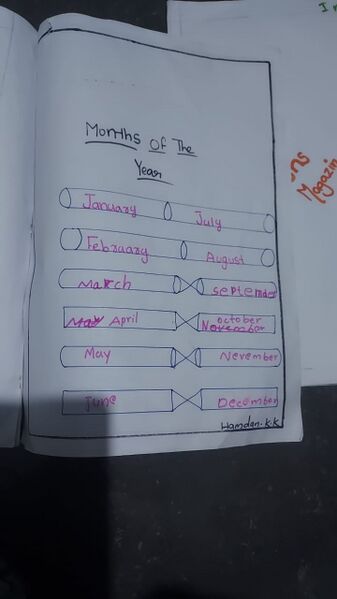 I
Months Of The
Year
January July
February August
March September
May April October
November
May November
June December
Hamdan.k.k
ns
Magazin